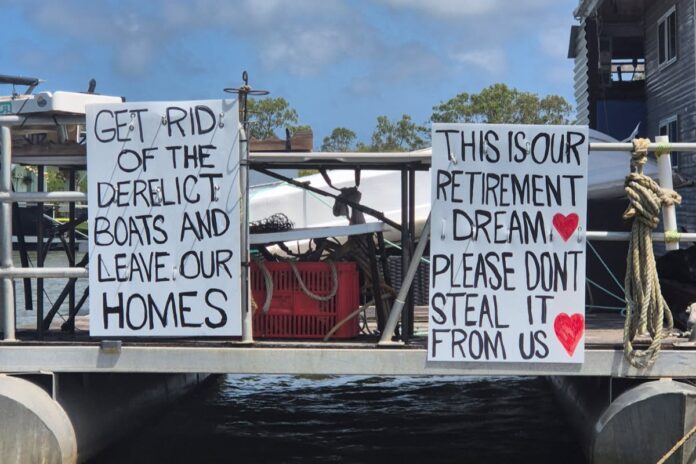 GET RID
OF THE
DERELICT
BOATS AND
LEAVE OUR
HOMES
THIS IS OUR
RETIREMENT
DREAM
PLEASE DONT
STEAL IT
FROM US